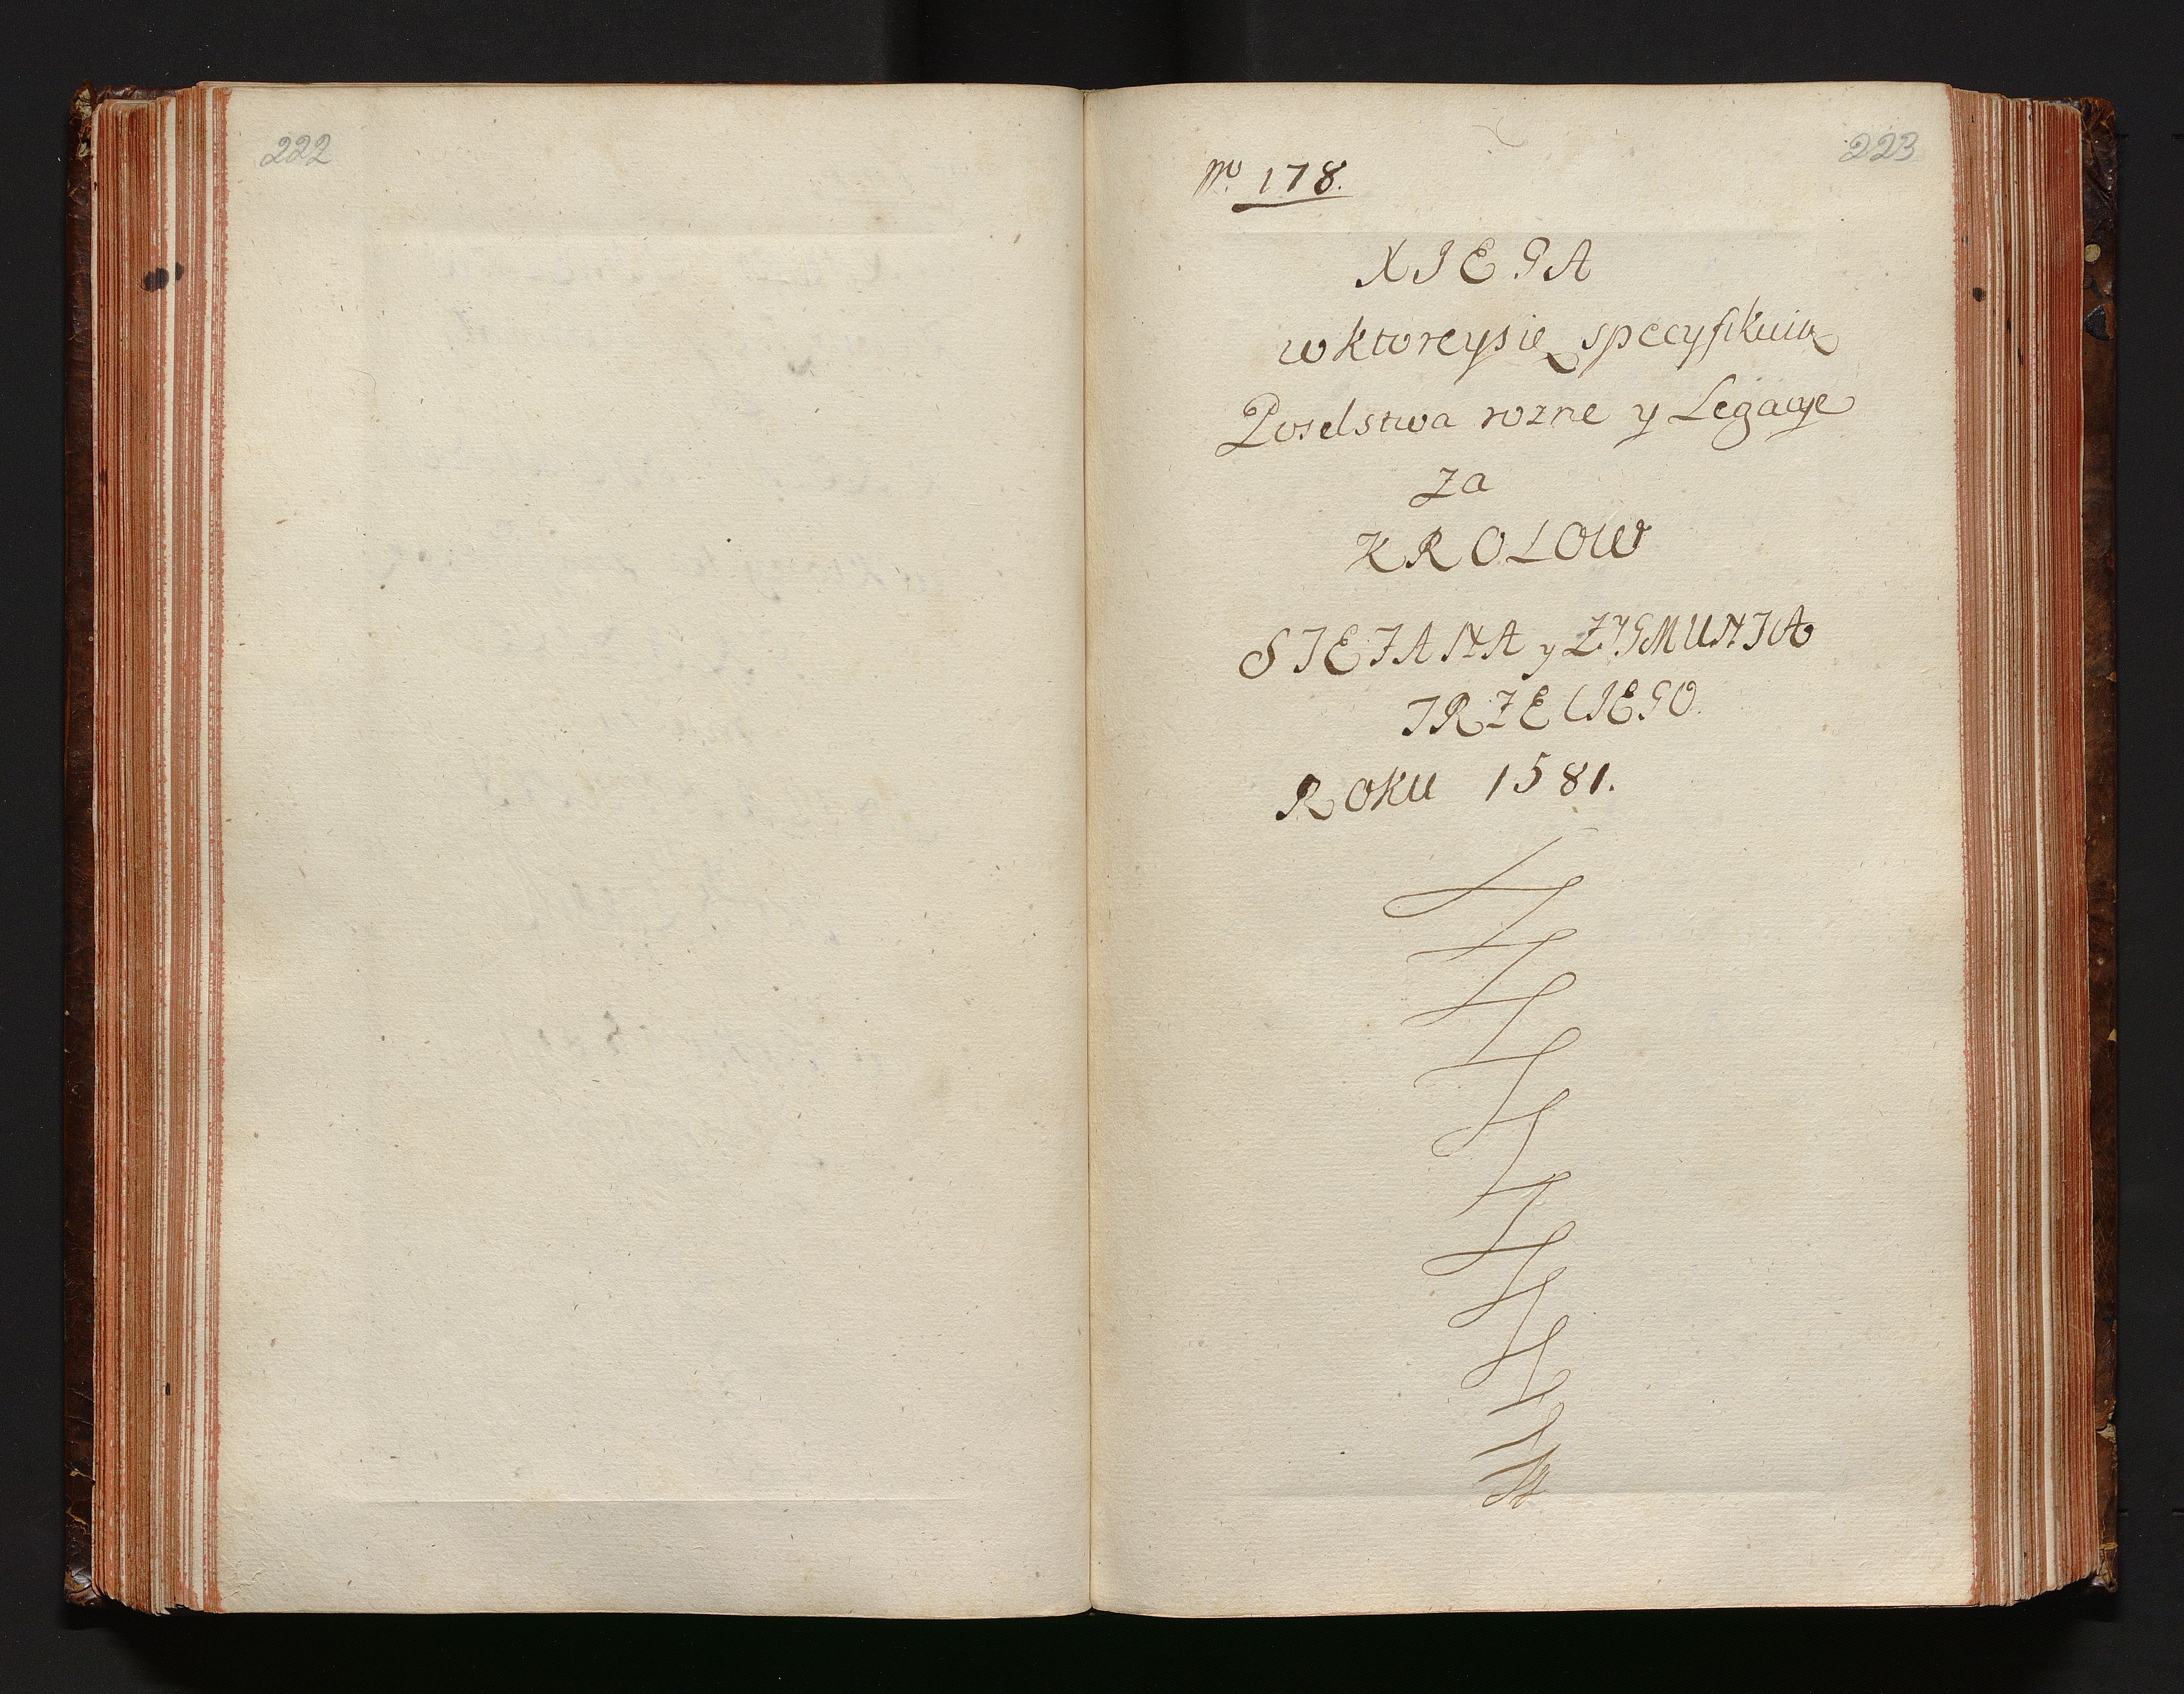 222
223
No. 178.
XIEGA
w ktorey się specyfikuią
Poselstwa rozne y Legacye
za
KROLOW
STEFANA y ZYGMUNTA
TRZECIEGO.
ROKU 1581.